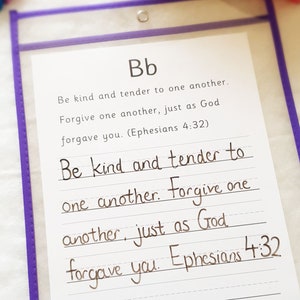 Bb
Be kind and tender to one another.
Forgive one another, just as God
forgave you. (Ephesians 4:32)
Be kind and tender to
one another. Forgive one
another, just as God
forgave you. Ephesians 4:32